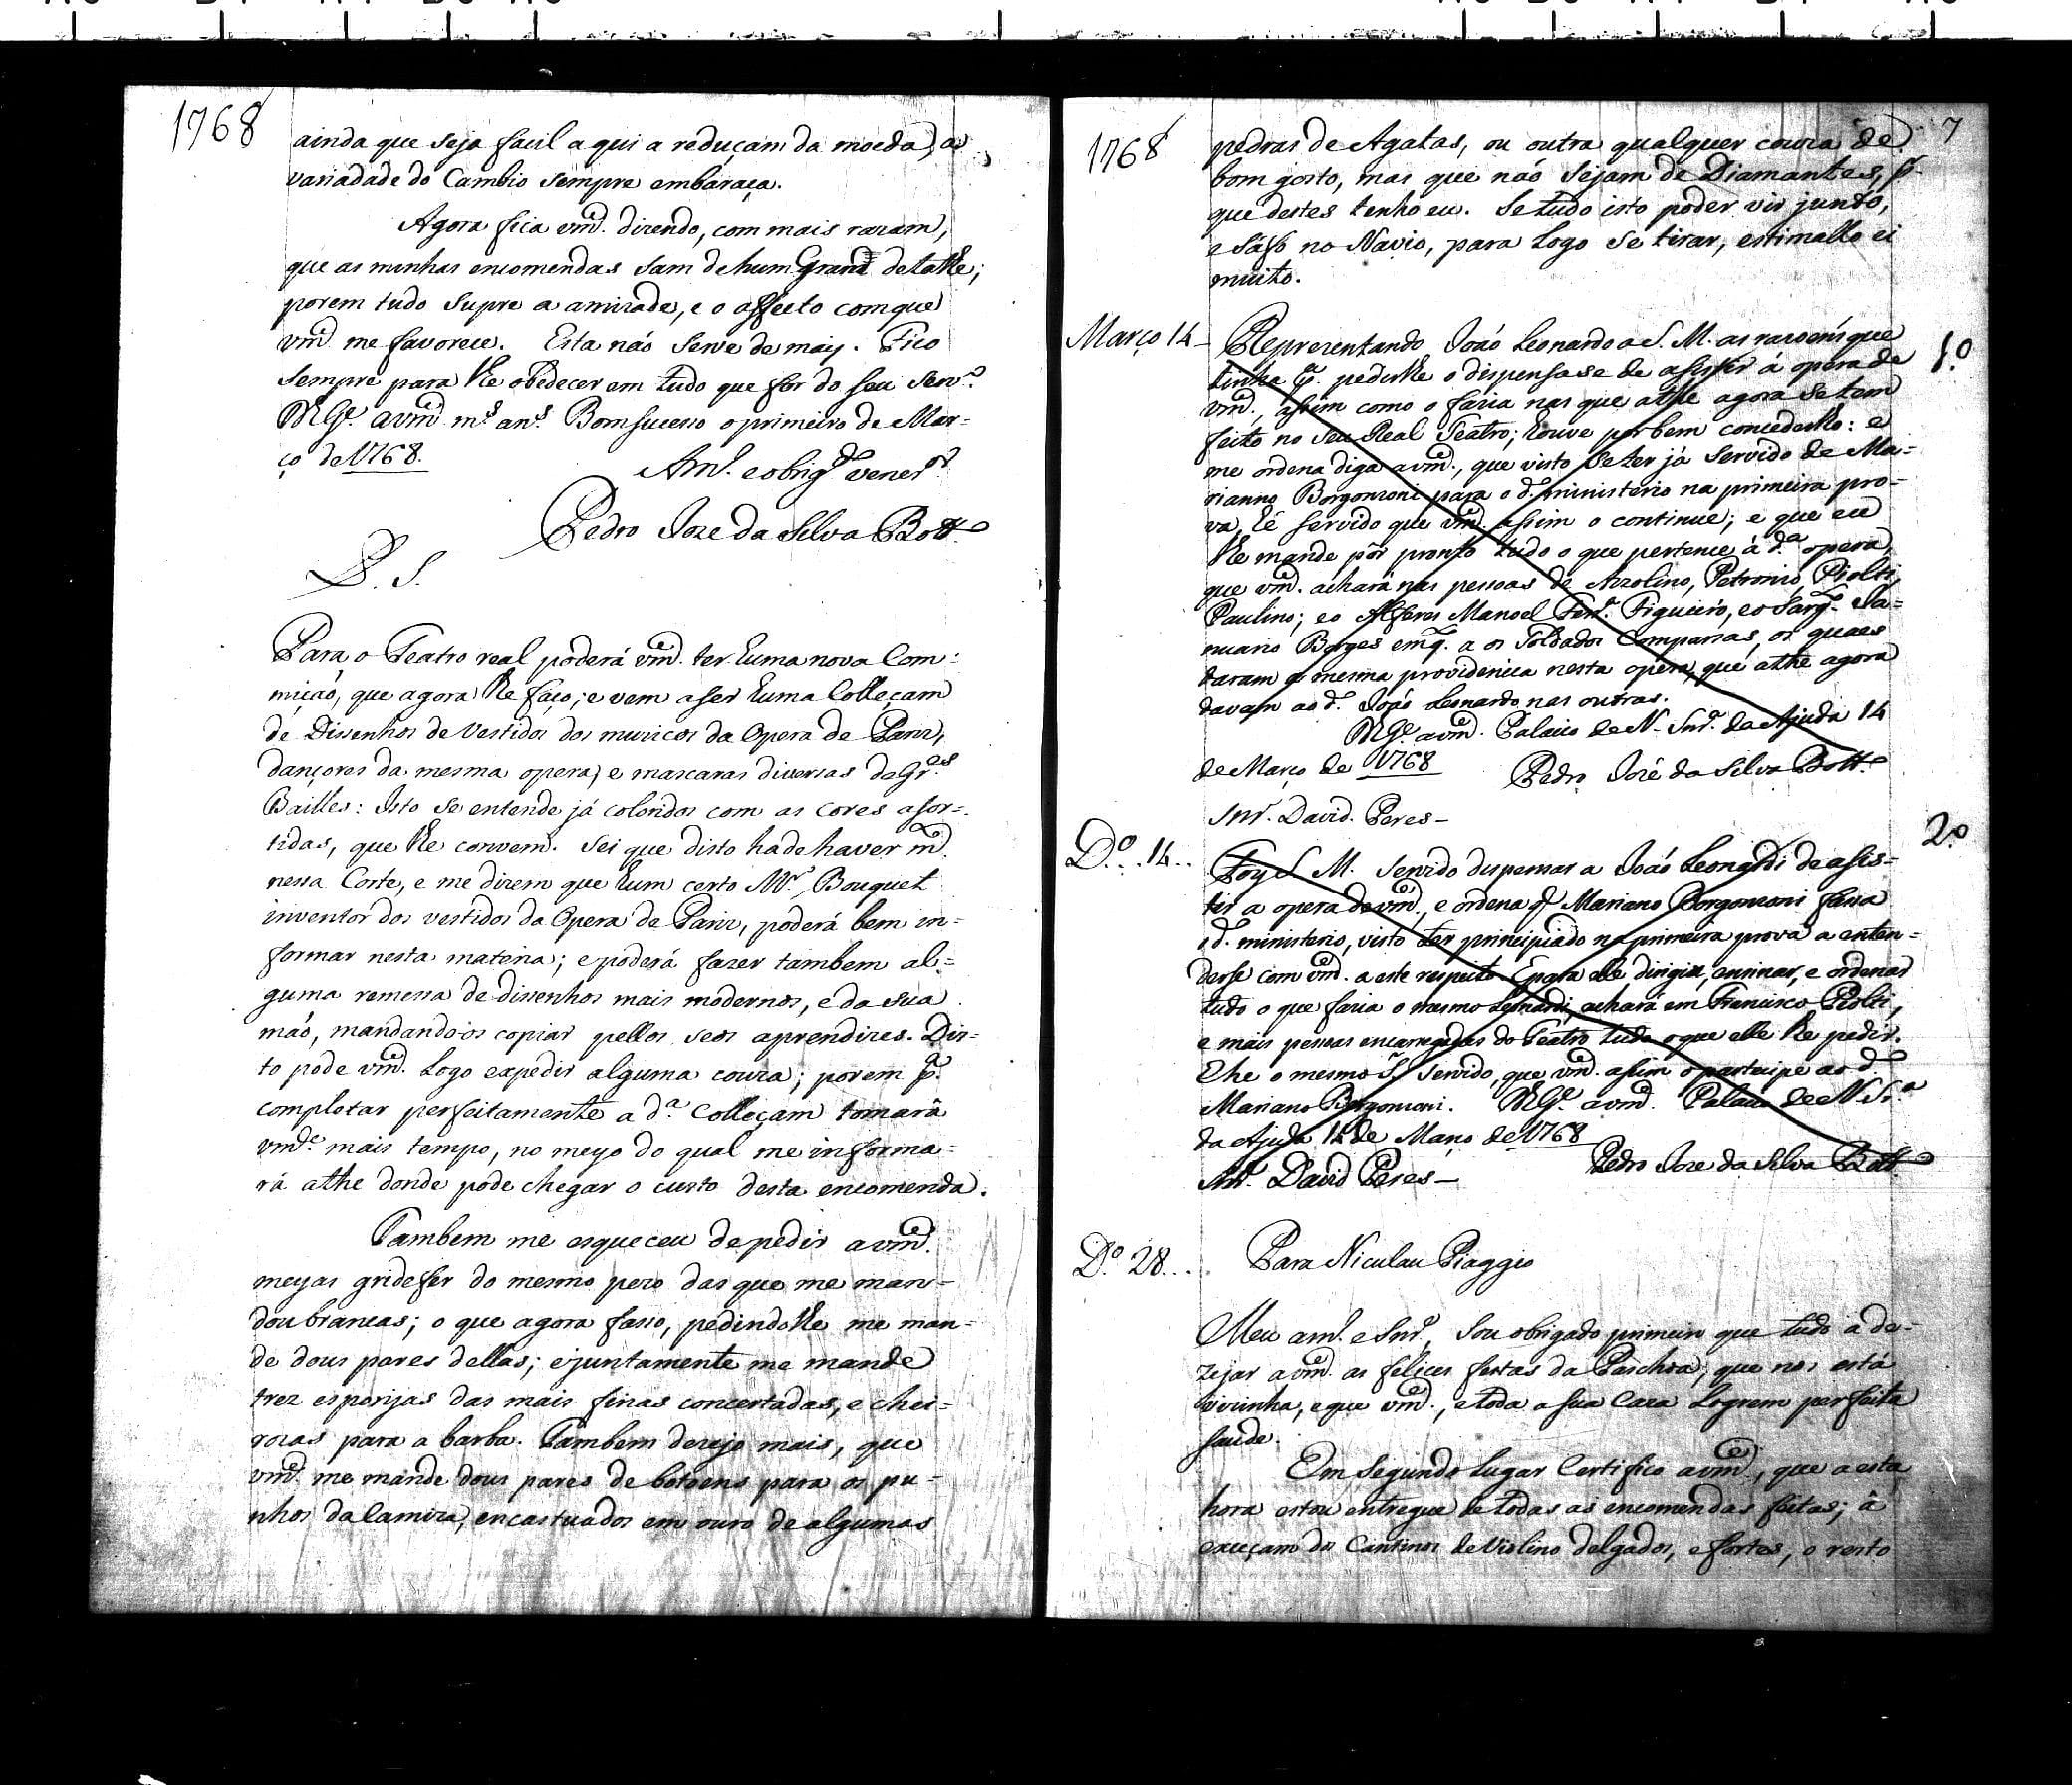 1768
ainda que seja facil a qui a reduçam da moeda, a
variadade do Cambio sempre embaraça.
Agora fica vmce. dizendo, com mais razam,
que as minhas encomendas sam de hum Grand detalhe;
porem tudo supre a amizade, e o affecto com que
vmce me favorece. Esta não serve de mais. Fico
sempre para lhe obedecer em tudo que for do seu serv.º
D.s G.e a vmce m.s an.s Bomsucesso o primeiro de Mar=
ço de 1768.
Am.º e obrig.do vener.or
Pedro Joze da Silva Bott.º
P. S.
Para o Teatro real poderá vmce. ter huma nova Com=
mição, que agora lhe faço; e vem a ser huma Colleçam
de Dissenhos de Vestidos dos muzicos da Opera de Pariz,
dançores da mesma opera, e mascaras diversas da Gr.es
Bailles: Isto se entende já coloridos com as cores asor=
tidas, que lhe convem. Sei que disto hade haver m.to
nessa Corte, e me dizem que hum certo Mr. Bouquet
inventor dos vestidos da Opera de Pariz, poderá bem in=
formar nesta materia; e poderá fazer tambem al=
guma remessa de dissenhos mais modernos, e da sua
mão, mandando-os copiar pellos seos aprendizes. Dis=
to pode vmce. logo expedir alguma couza; porem p.ª
completar perfeitamente a d.ª Colleçam tomará
vmce. mais tempo, no meyo do qual me informa=
rá athe donde pode chegar o custo desta encomenda.
Tambem me esqueceu de pedir a vmce.
meyas gridefer do mesmo pezo das que me man=
dou brancas; o que agora fasso, pedindolhe me man=
de dous pares dellas; e juntamente me mande
trez esponjas das mais finas concertadas, e chei=
rozas para a barba. Tambem dezejo mais, que
vmce. me mande dous pares de botoens para os pu=
nhos da Camiza, encastuados em ouro de algumas
1768
7
pedras de Agatas, ou outra qualquer couza de
bom gosto, mas que não sejam de Diamantes, p.
que destes tenho eu. Se tudo isto poder vir junto,
e salvo no Navio, para logo se tirar, estimallo ei
muito.
Março 14
1.º
Reprezentando João Leonardo a S. M. as razoens que
tinha p.ª pedirlhe o dispensase de assistir á opera de
vmce., assim como o faria nas que athe agora se tem
feito no seu Real Teatro; houve por bem concederlho: e
me ordena diga a vmce., que visto se ter já servido de Ma=
rianno Borgonzoni para o d.º ministerio na primeira pro=
va, hé servido que vmce. assim o continue; e que eu
lhe mande pôr pronto tudo o que pertence á d.ª opera,
que vmce. achará nas pessoas de Azolino, Petronio, Piolti,
Paulino; e o Alferes Manoel Ferr.ª Figueiró, e o Sarg.to Ja=
nuario Borges emq.to a os Soldados Comparsas, os quaes
daram a mesma providencia nesta opera, que athe agora
davam ao d.º João Leonardo nas outras.
D.s G.e a vmce. Palacio de N. Snr.ª da Ajuda 14
de Março de 1768
Pedro Jozé da Silva Bott.º
Snr. David Peres –
D.º 14
2.º
Foy S. M. servido dispensar a João Leonardi de asis=
tir a opera de vmce., e ordena q Mariano Borgonzoni fassa
o d.º ministerio, visto ter principiado na primeira prova a enten=
derse com vmce. a este respeito. E para elle dirigir, ensinar, e ordenar
tudo o que faria o mesmo Leonardi, achará em Francisco Piolti,
e mais pessoas encarregadas do Teatro tudo o que elle lhe pedir.
E he o mesmo S.r servido, que vmce. assim o participe ao d.º
Mariano Borgonzoni. D.s G.e a vmce. Palacio de N. Sr.ª
da Ajuda 14 de Março de 1768
Pedro Joze da Silva Bott.º
Snr. David Peres –
D.º 28
Para Niculau Piaggio
Meu am.º e Snr., Sou obrigado primeiro que tudo a de=
zejar a vmce. as felices festas da Paschoa, que nos está
vizinha, e que vmce., e toda a sua Caza logrem perfeita
saude.
Em segundo lugar Certifico a vmce., que a esta
hora estou entregue de todas as encomendas feitas; á
exceçam dos Cantinos de Violino delgados, e fortes, o resto